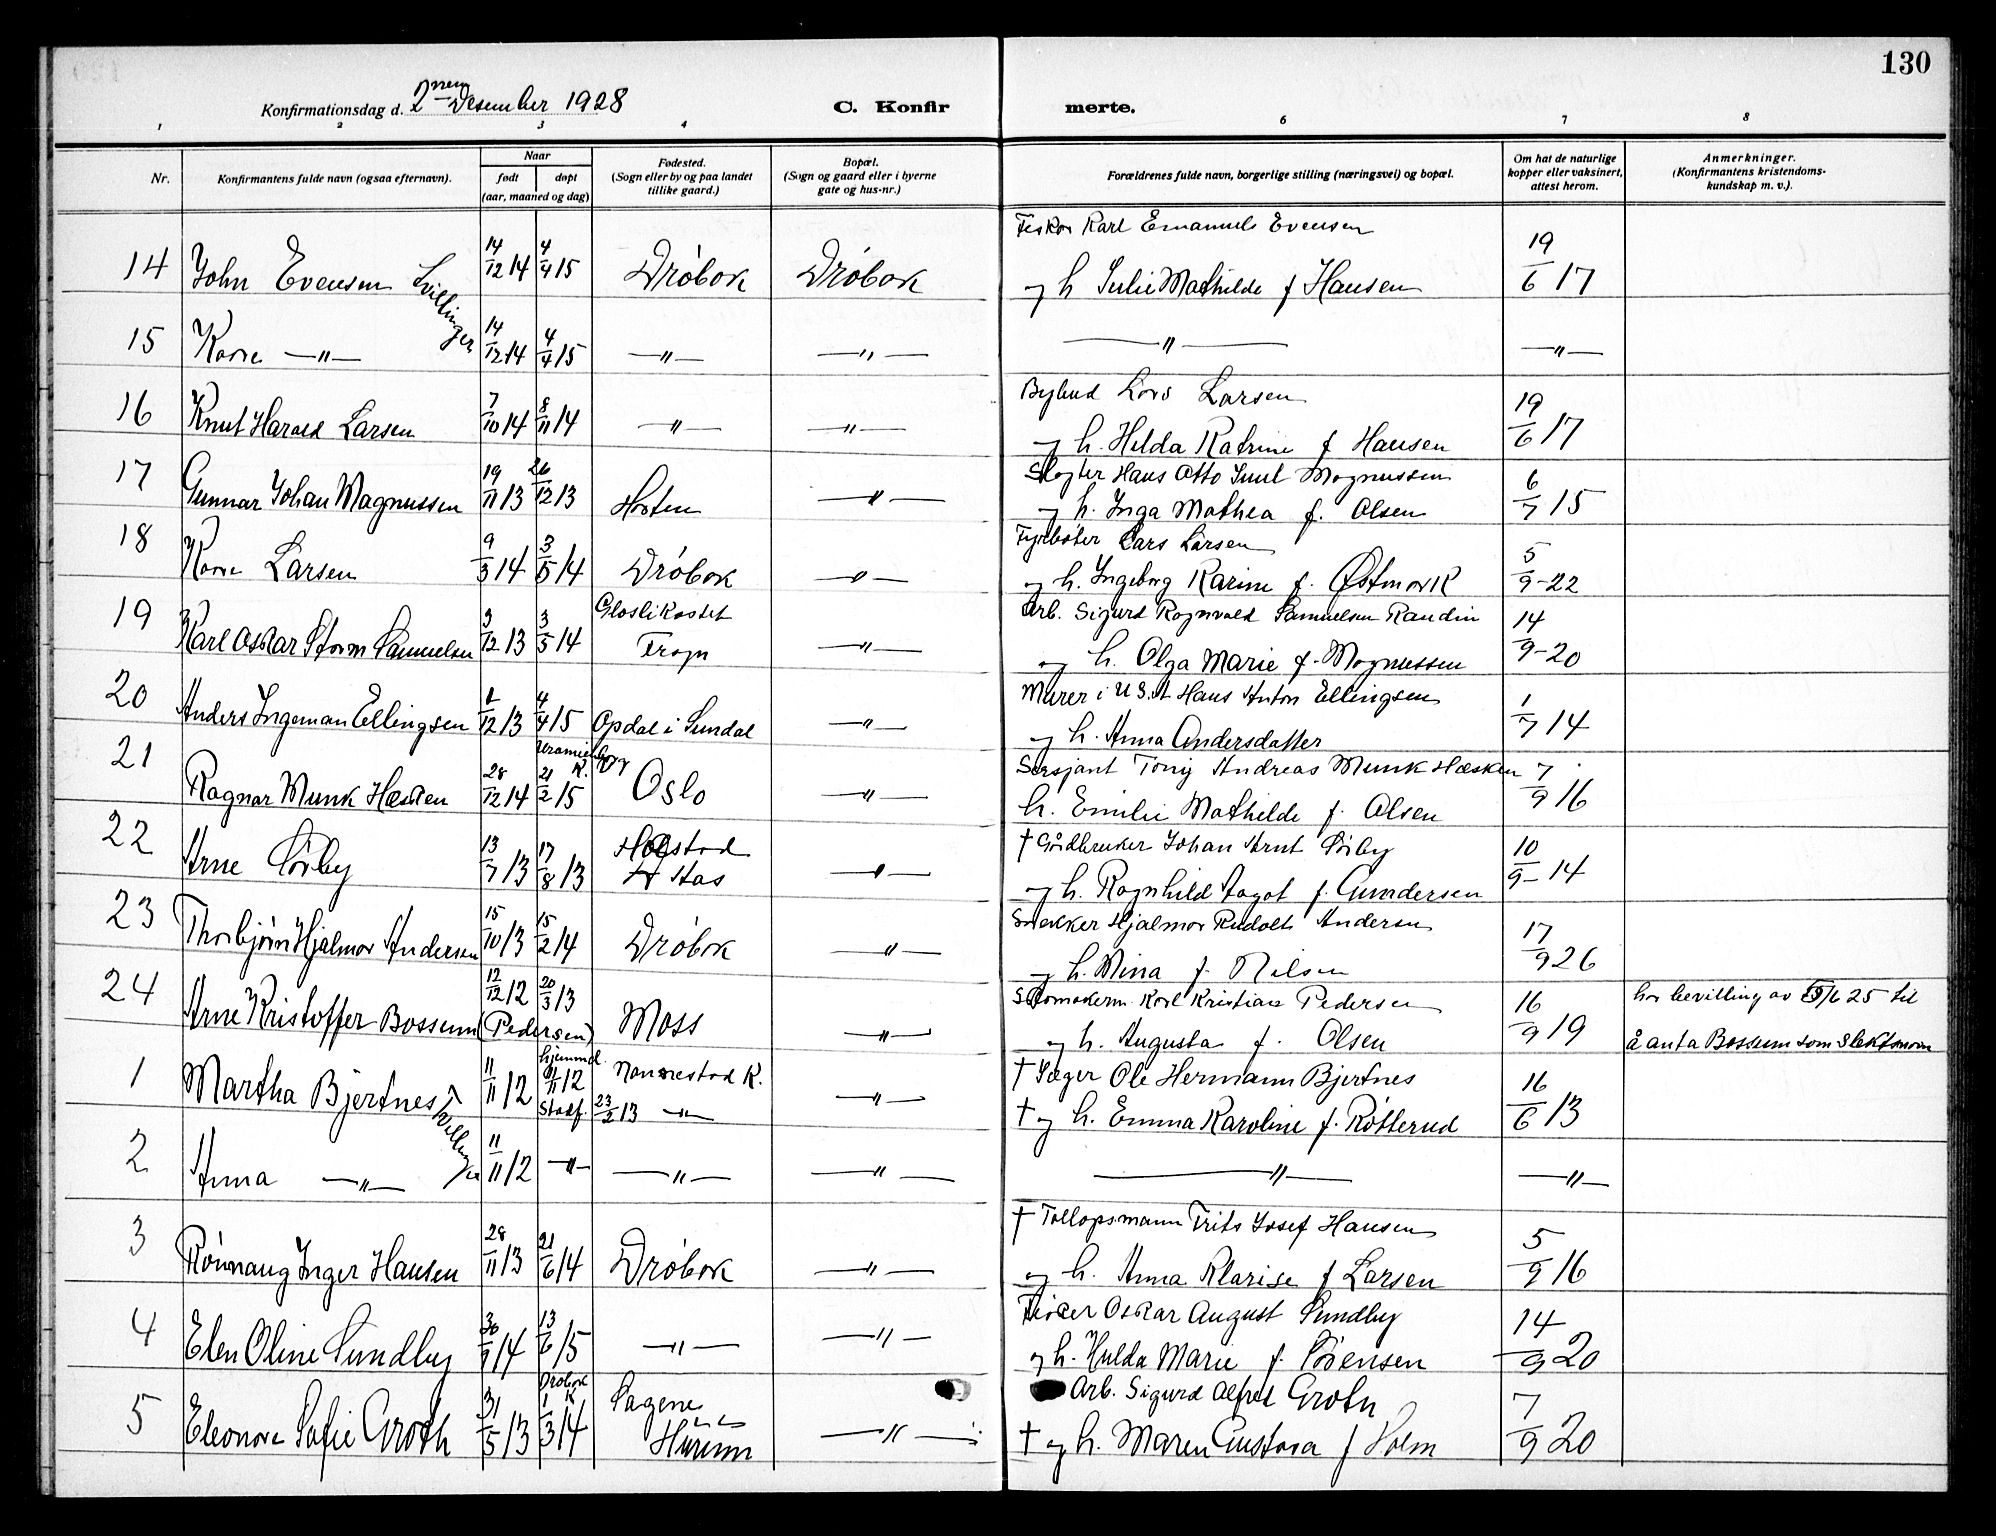 130
Konfirmationsdag d. 2nen Desember 1928 C. Konfirmerte.
1 2 3 4 6 7 8
Nr. Konfirmantens fulde navn (ogsaa efternavn). Naar født døpt (aar, maaned og dag) Fødested. (Sogn eller by og paa landet tillike gaard.) Bopæl. (Sogn og gaard eller i byerne gate og hus-nr.) Forældrenes fulde navn, borgerlige stilling (næringsvei) og bopæl. Om hat de naturlige kopper eller vaksinert, attest herom. Anmerkninger. (Konfirmantens kristendomskundskap m. v.).
Fisker Karl Emanuel Evensen
14 John Evensen Tvillinger 14/12 14 4/4 15 Drøbak Drøbak og h. Julie Mathilde f Hansen 19/6 17
15 Kåre —"— 14/12 14 4/4 15 —"— —"— —"— —"—
Bybud Lars Larsen
16 Knut Harald Larsen 7/10 14 8/11 14 —"— —"— og h. Hilda Katrine f Hansen 19/6 17
Slagter Hans Otto Juul Magnussen
17 Gunnar Johan Magnussen 19/11 13 26/12 13 Horten —"— og h. Inga Mathea f. Olsen 6/7 15
Fyrbøter Lars Larsen
18 Kåre Larsen 9/3 14 3/5 14 Drøbak —"— og h. Ingeborg Karine f. Østmark 5/9-22
Arb. Sigurd Ragnvald Samuelsen Raudin
19 Karl Oskar Storm Samuelsen 3/12 13 3/5 14 Glaslikastet Frogn —"— og h. Olga Marie f. Magnussen 14/9-20
Murer i U.S.A Hans Anton Ellingsen
20 Anders Ingeman Ellingsen 1/12 13 4/4 15 Opdal i Sundal —"— og h. Anna Andersdatter 1/7 14
Sersjant Tony Andreas Munk Hæsken
21 Ragnar Munk Hæsken 28/12 14 21/2 15 K. Oslo —"— h. Emilie Mathilde f. Olsen 7/9 16
† Gårdbruker Johan Arnt Sørby
22 Arne Sørby 13/7 13 17/8 13 Holstad Ås —"— og h. Ragnhild Aagot f. Gundersen 10/9-14
Snekker Hjalmar Rudolf Andersen
23 Thorbjørn Hjalmar Andersen 15/10 13 15/2 14 Drøbak —"— og h. Nina f. Nilsen 17/9 26
Skomakerm. Karl Kristian Pedersen
24 Arne Kristoffer Bossum (Pedersen) 12/12 12 20/3 13 Moss —"— og h. Augusta f. Olsen 16/9 19 har bevilling av /6 25 til
å anta Bossum som slektsnavn
† Jæger Ole Hermann Bjertnes
1 Martha Bjertnes Tvillinger 11/11 12 hjemmed. /11 12 Stadf. 23/2 13 Nannestad K. —"— —"— † og h. Emma Karoline f. Røtterud 16/6 13
2 Anna —"— 11/11 12 —"— —"— —"— —"— —"—
† Tollopsmann Frits Josef Hansen
3 Rønnaug Inger Hansen 28/11 13 21/6 14 Drøbak —"— og h. Anna Klarise f Larsen 5/9 16
Fisker Oskar August Sundby
4 Elen Oline Sundby 30/9 14 13/6 15 —"— —"— og h. Hulda Marie f. Sørensen 14/9 20
Arb. Sigurd Alfred Groth
5 Eleonore Sofie Groth 31/5 13 Drøbak K 1/3 14 Sagene Hurum —"— † og h. Maren Gustava f Holm 7/9 20